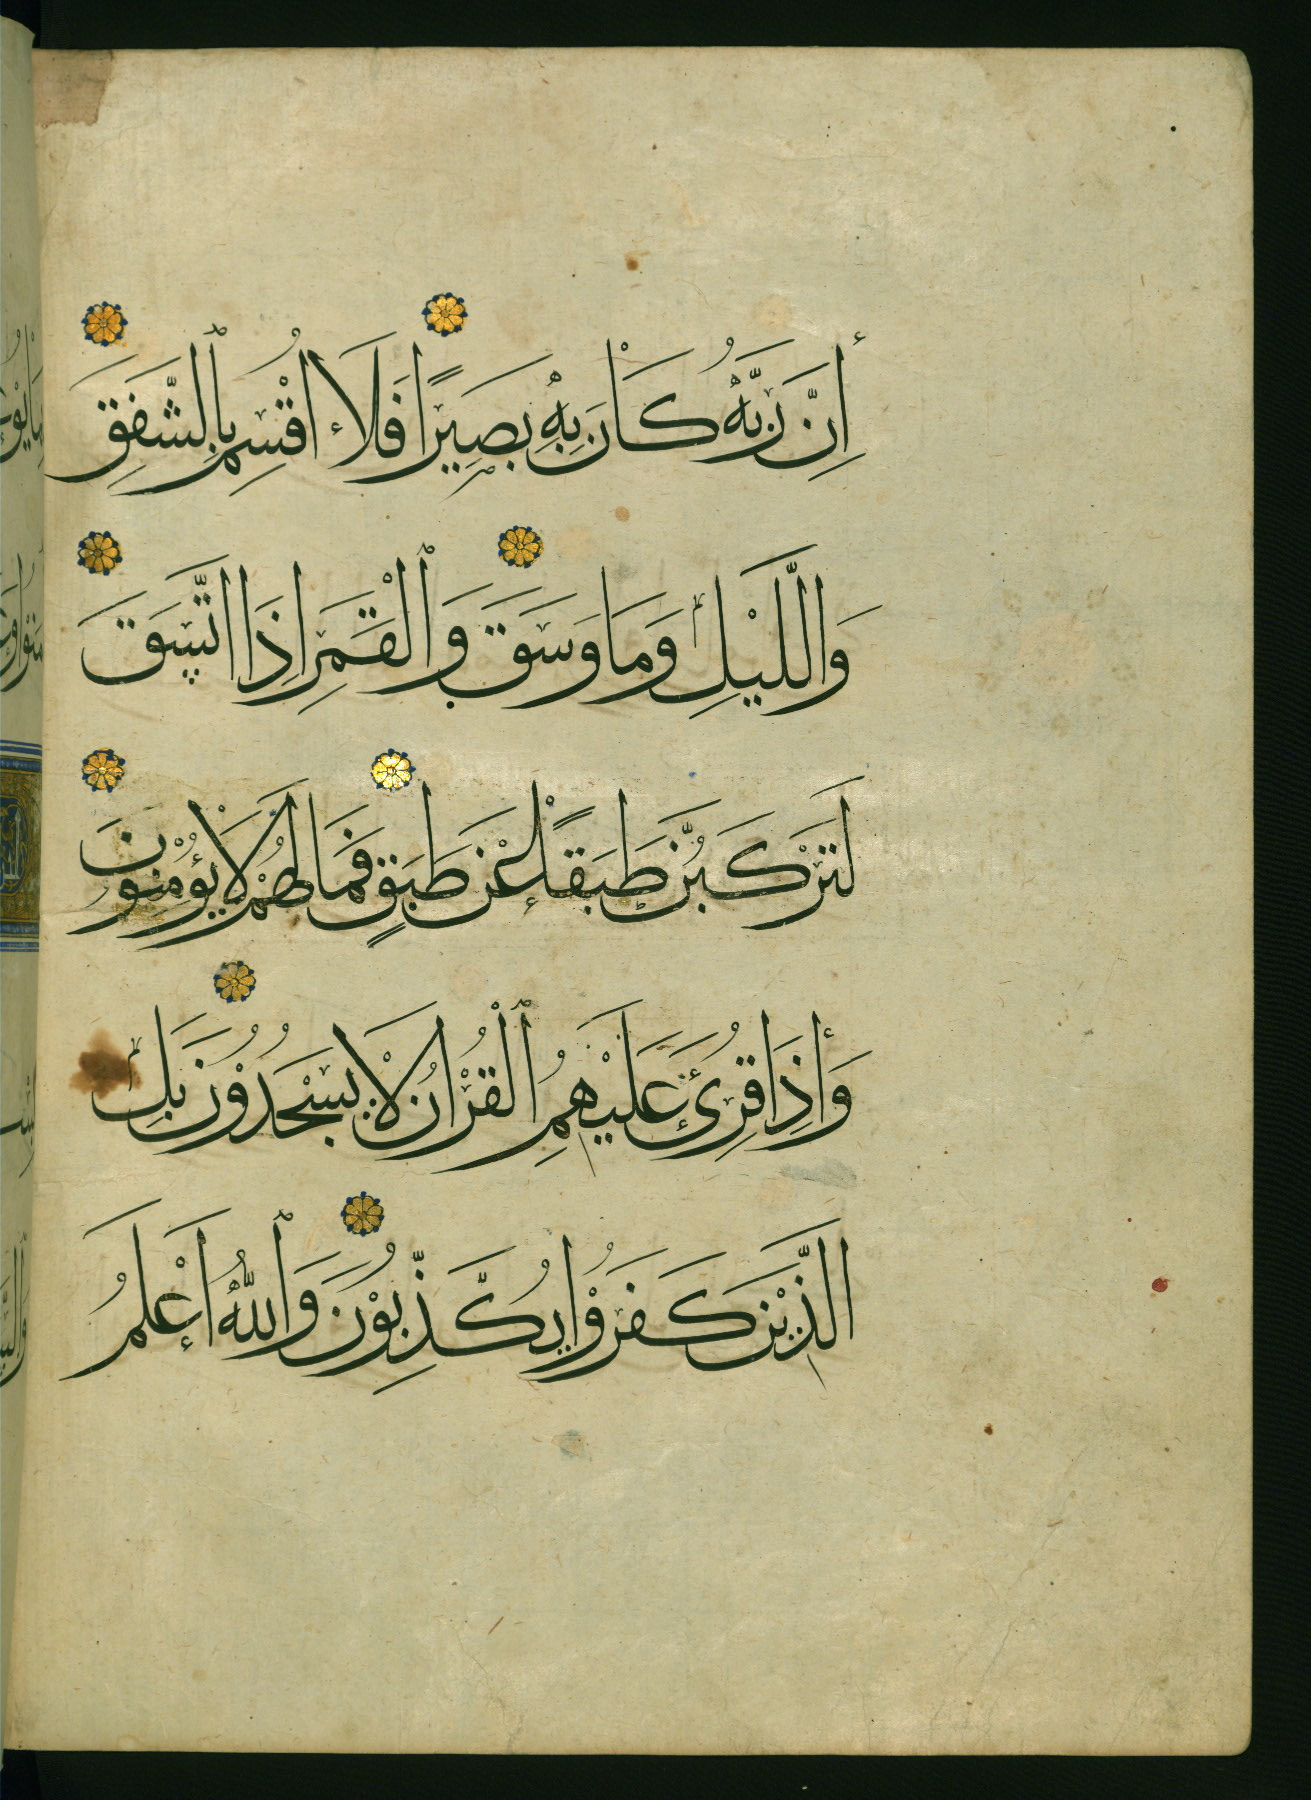 أِنَّ رَبَّهُ كَاْنَ بِهِ بَصِيْرًا فَلَاء اقْسِمُ بِالشَّفَقِ
وَاللَّيْلِ وَمَا وَسَقَ وَالْقَمَرِ اِذَا اتَّسَقَ
لَتَرْكَبُنَّ طَبَقًا عَنْ طَبَقٍ فَمَا لَهُمْ لَاْ يُؤْمِنُوْنَ
وَأِذَا قُرِئَ عَلَيْهِمُ الْقُرْاٰنُ لَاْ يَسْجُدُوْنَ بَلِ
الَّذِيْنَ كَفَرُوْا يُكَذِّبُوْنَ وَاللهُ اَعْلَمُ